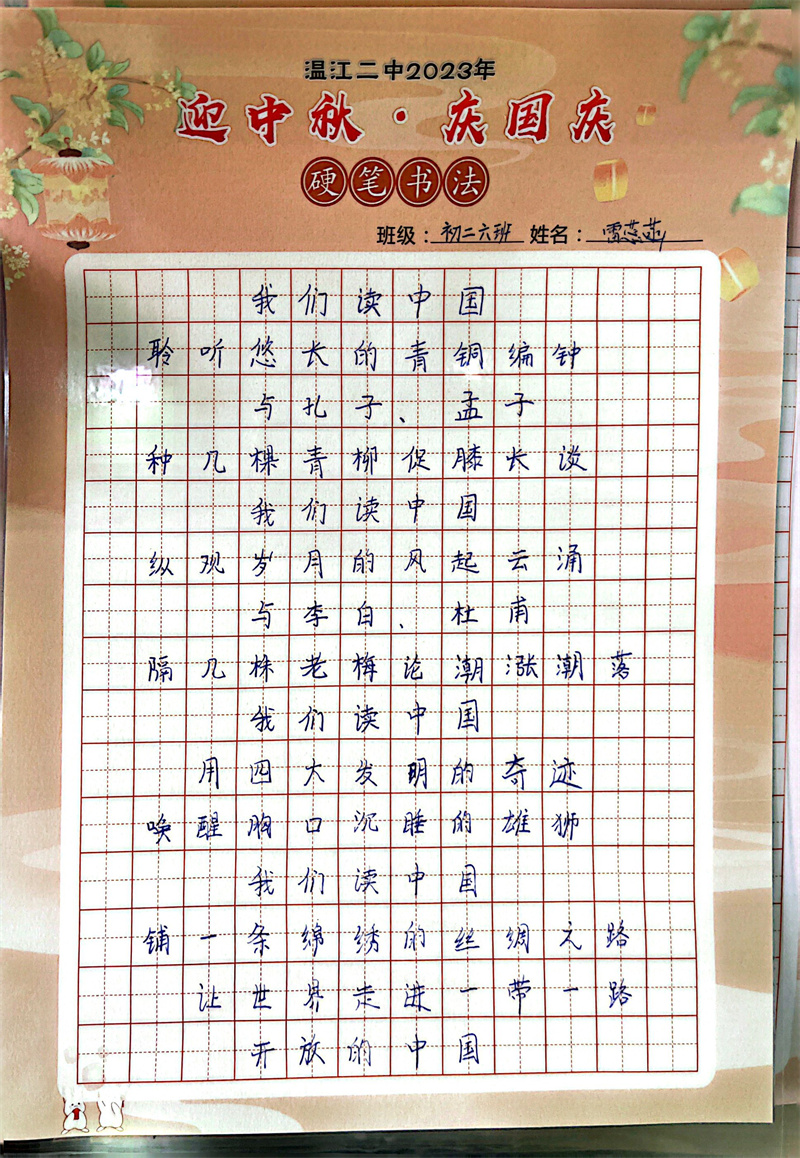 温江二中2023年
迎中秋·庆国庆
硬笔书法
班级：初二六班 姓名：雷蕊菡
我们读中国
聆听悠长的青铜编钟
与孔子、孟子
种几棵青柳促膝长谈
我们读中国
纵观岁月的风起云涌
与李白、杜甫
隔几株老梅论潮涨潮落
我们读中国
用四大发明的奇迹
唤醒胸口沉睡的雄狮
我们读中国
铺一条绵绣的丝绸之路
让世界走进一带一路
开放的中国